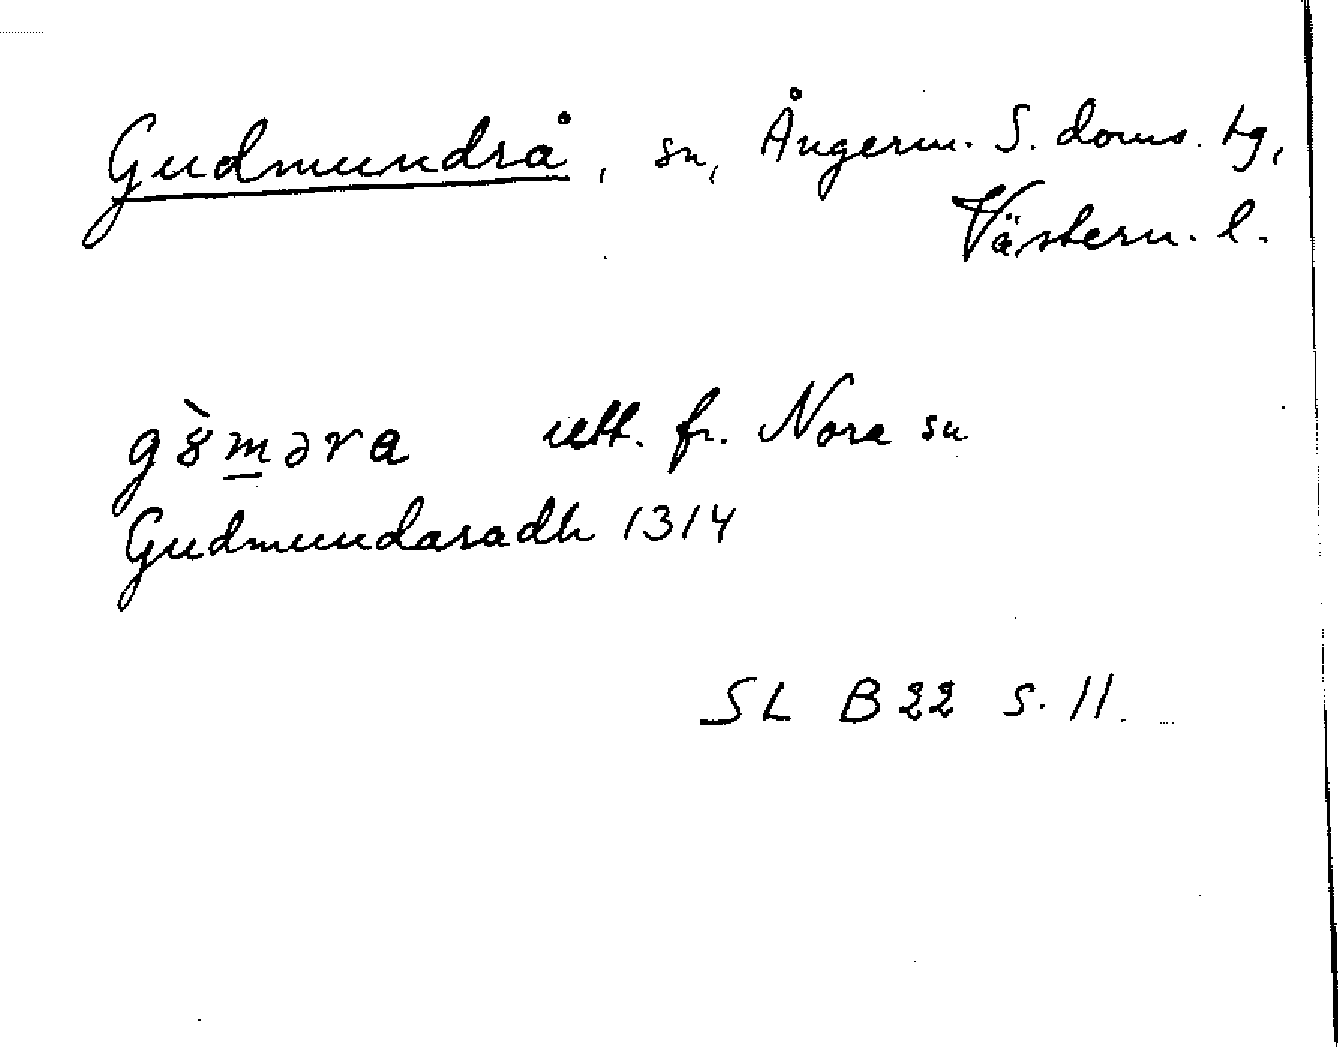 Gudmundrå, sn, Ångerm. S. doms. tg,
Västern. l.
gɣ̀m̲əra utt. fr. Nora sn
Gudmundaradh 1314
SL B22 S. 11.